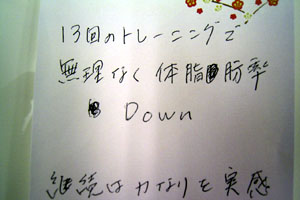 13回のトレーニングで
無理なく体脂肪率
Down
継続は力なりを実感